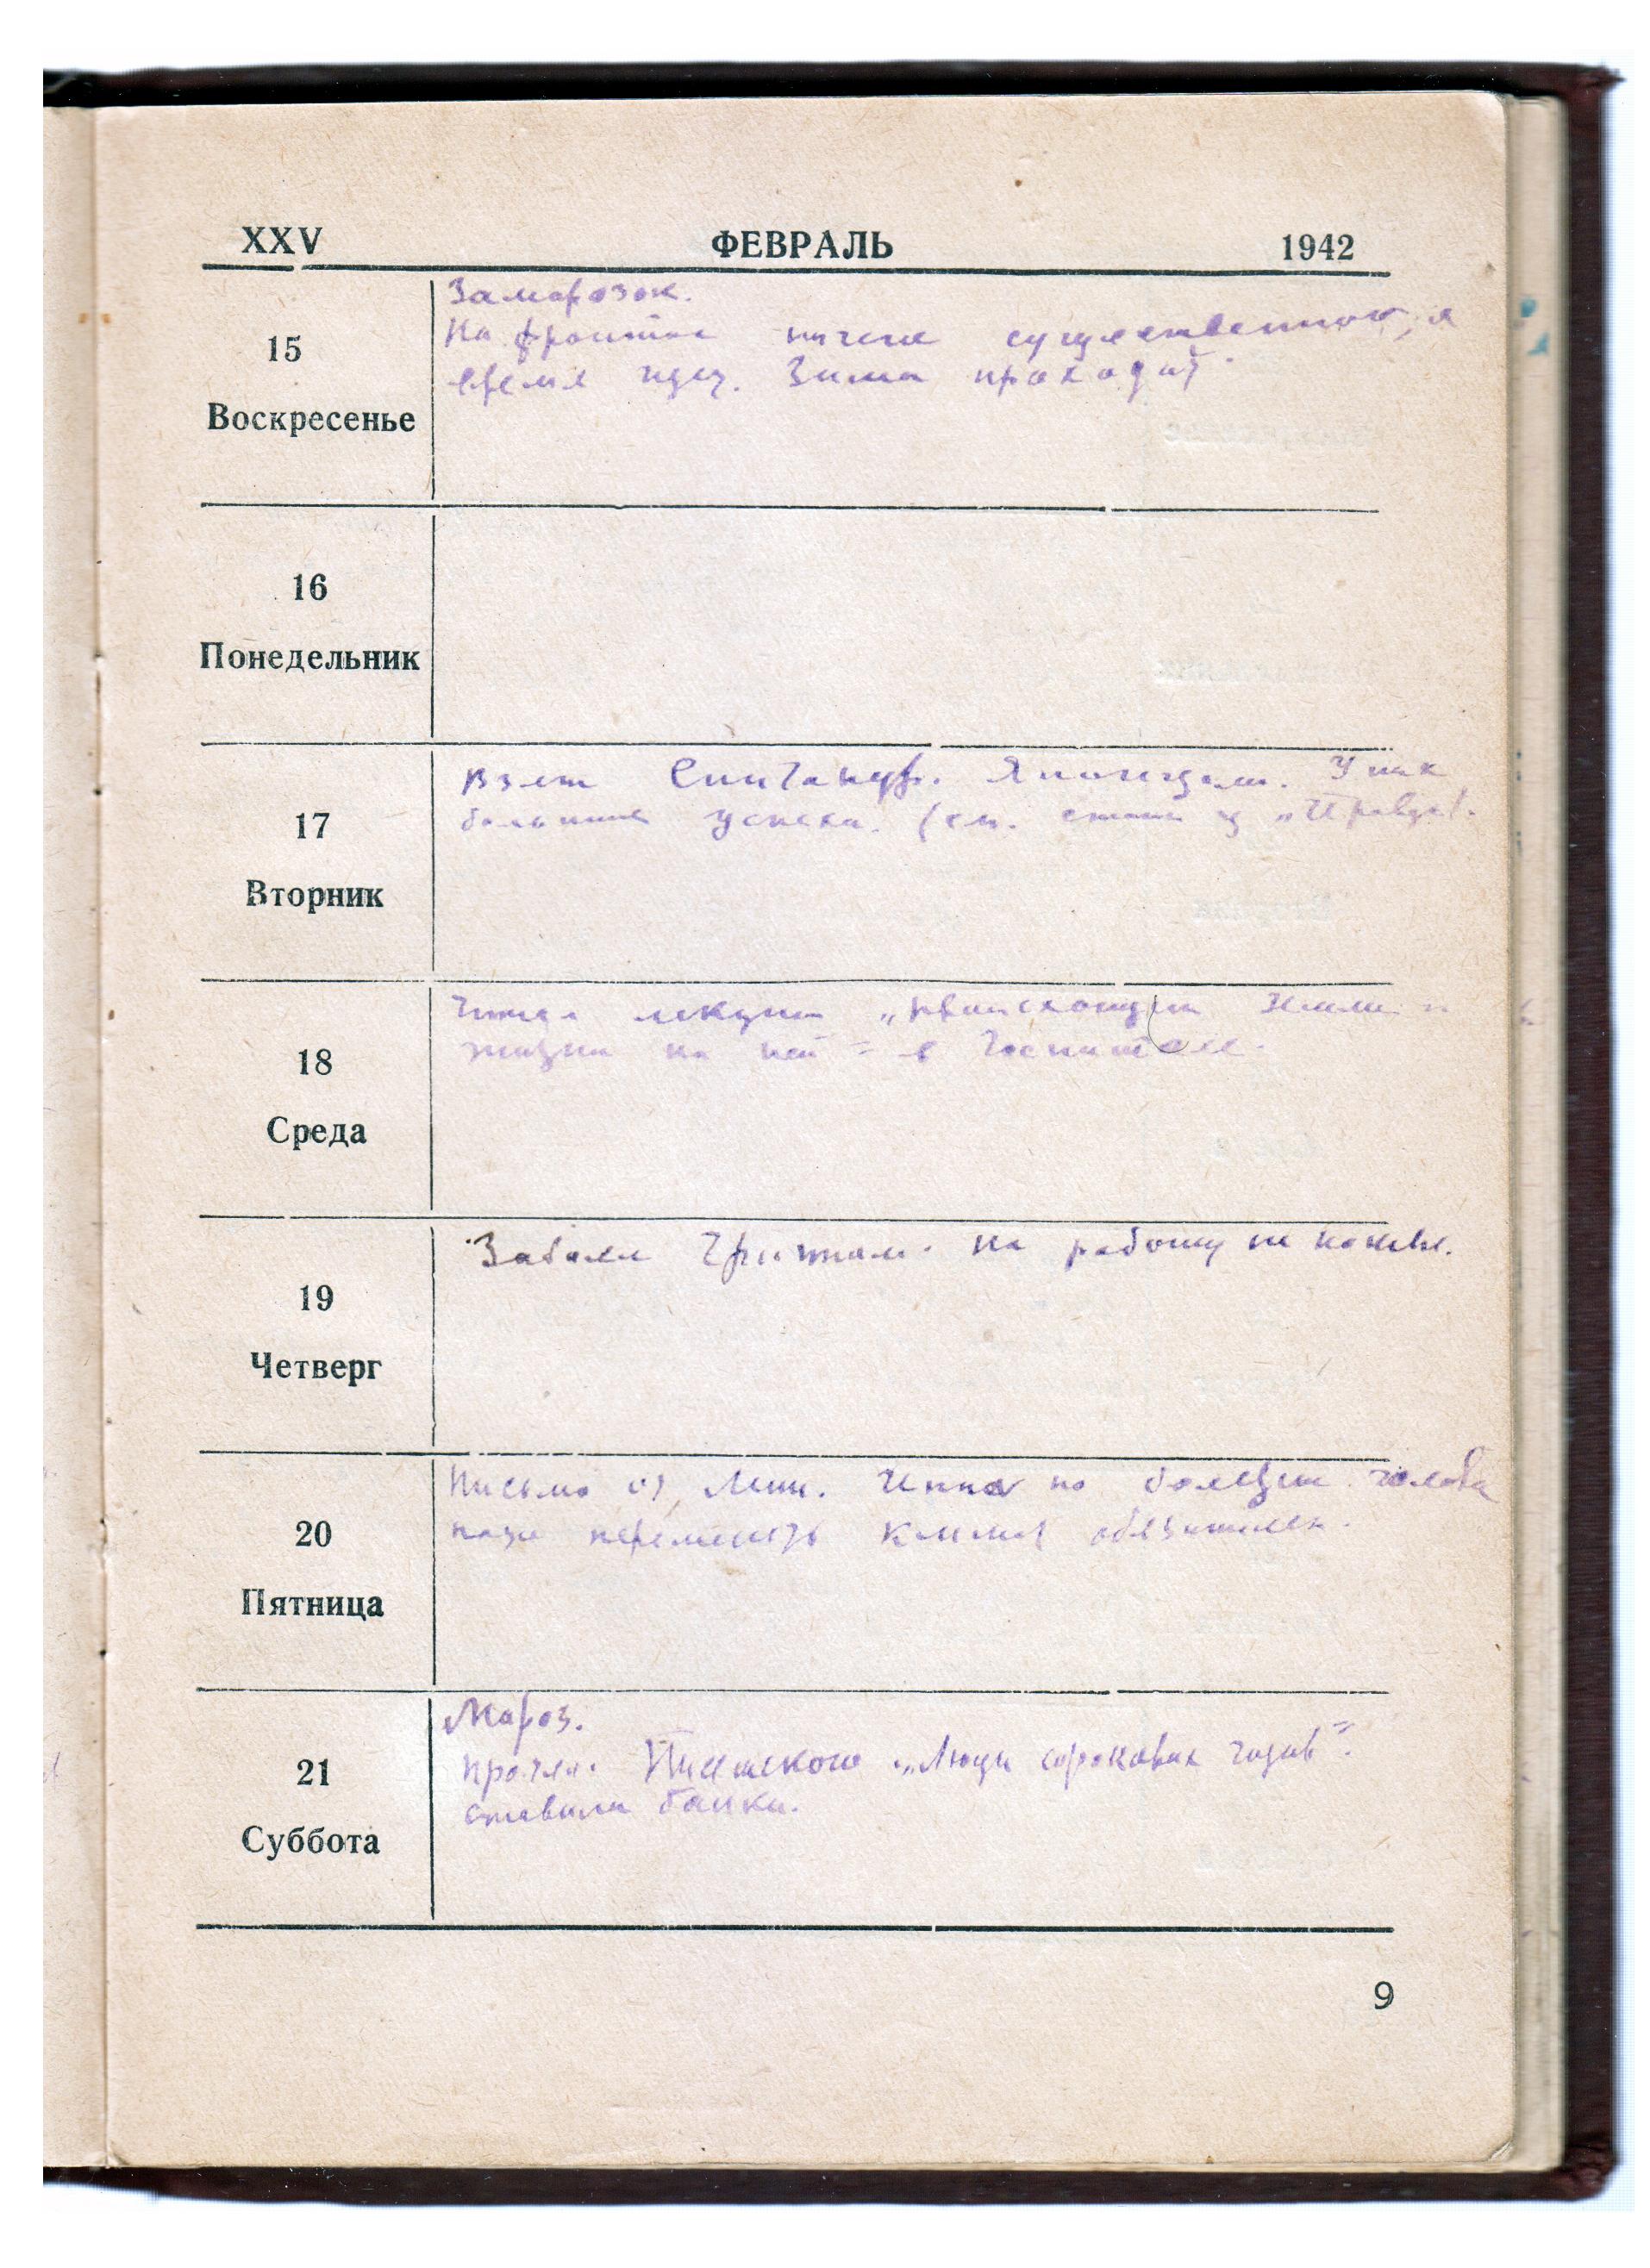 XXV ФЕВРАЛЬ 1942
15
Воскресенье
Заморозок.
На фронтах ничего существенного, а
время идет. Зима проходит.
16
Понедельник
17
Вторник
Взят Сингапур. Японцами. У них
большие успехи. (см. статью из „Правды“).
18
Среда
Читал лекцию „Происхожден Земли и
жизни на ней“ в Госпитале.
19
Четверг
Заболел Гриппом. На работу не
20
Пятница
Письмо от по голова
надо переменить климат обязательно.
21
Суббота
Мороз.
Прочел. Писемского „Люди сороковых годов“.
ставили банки.
9